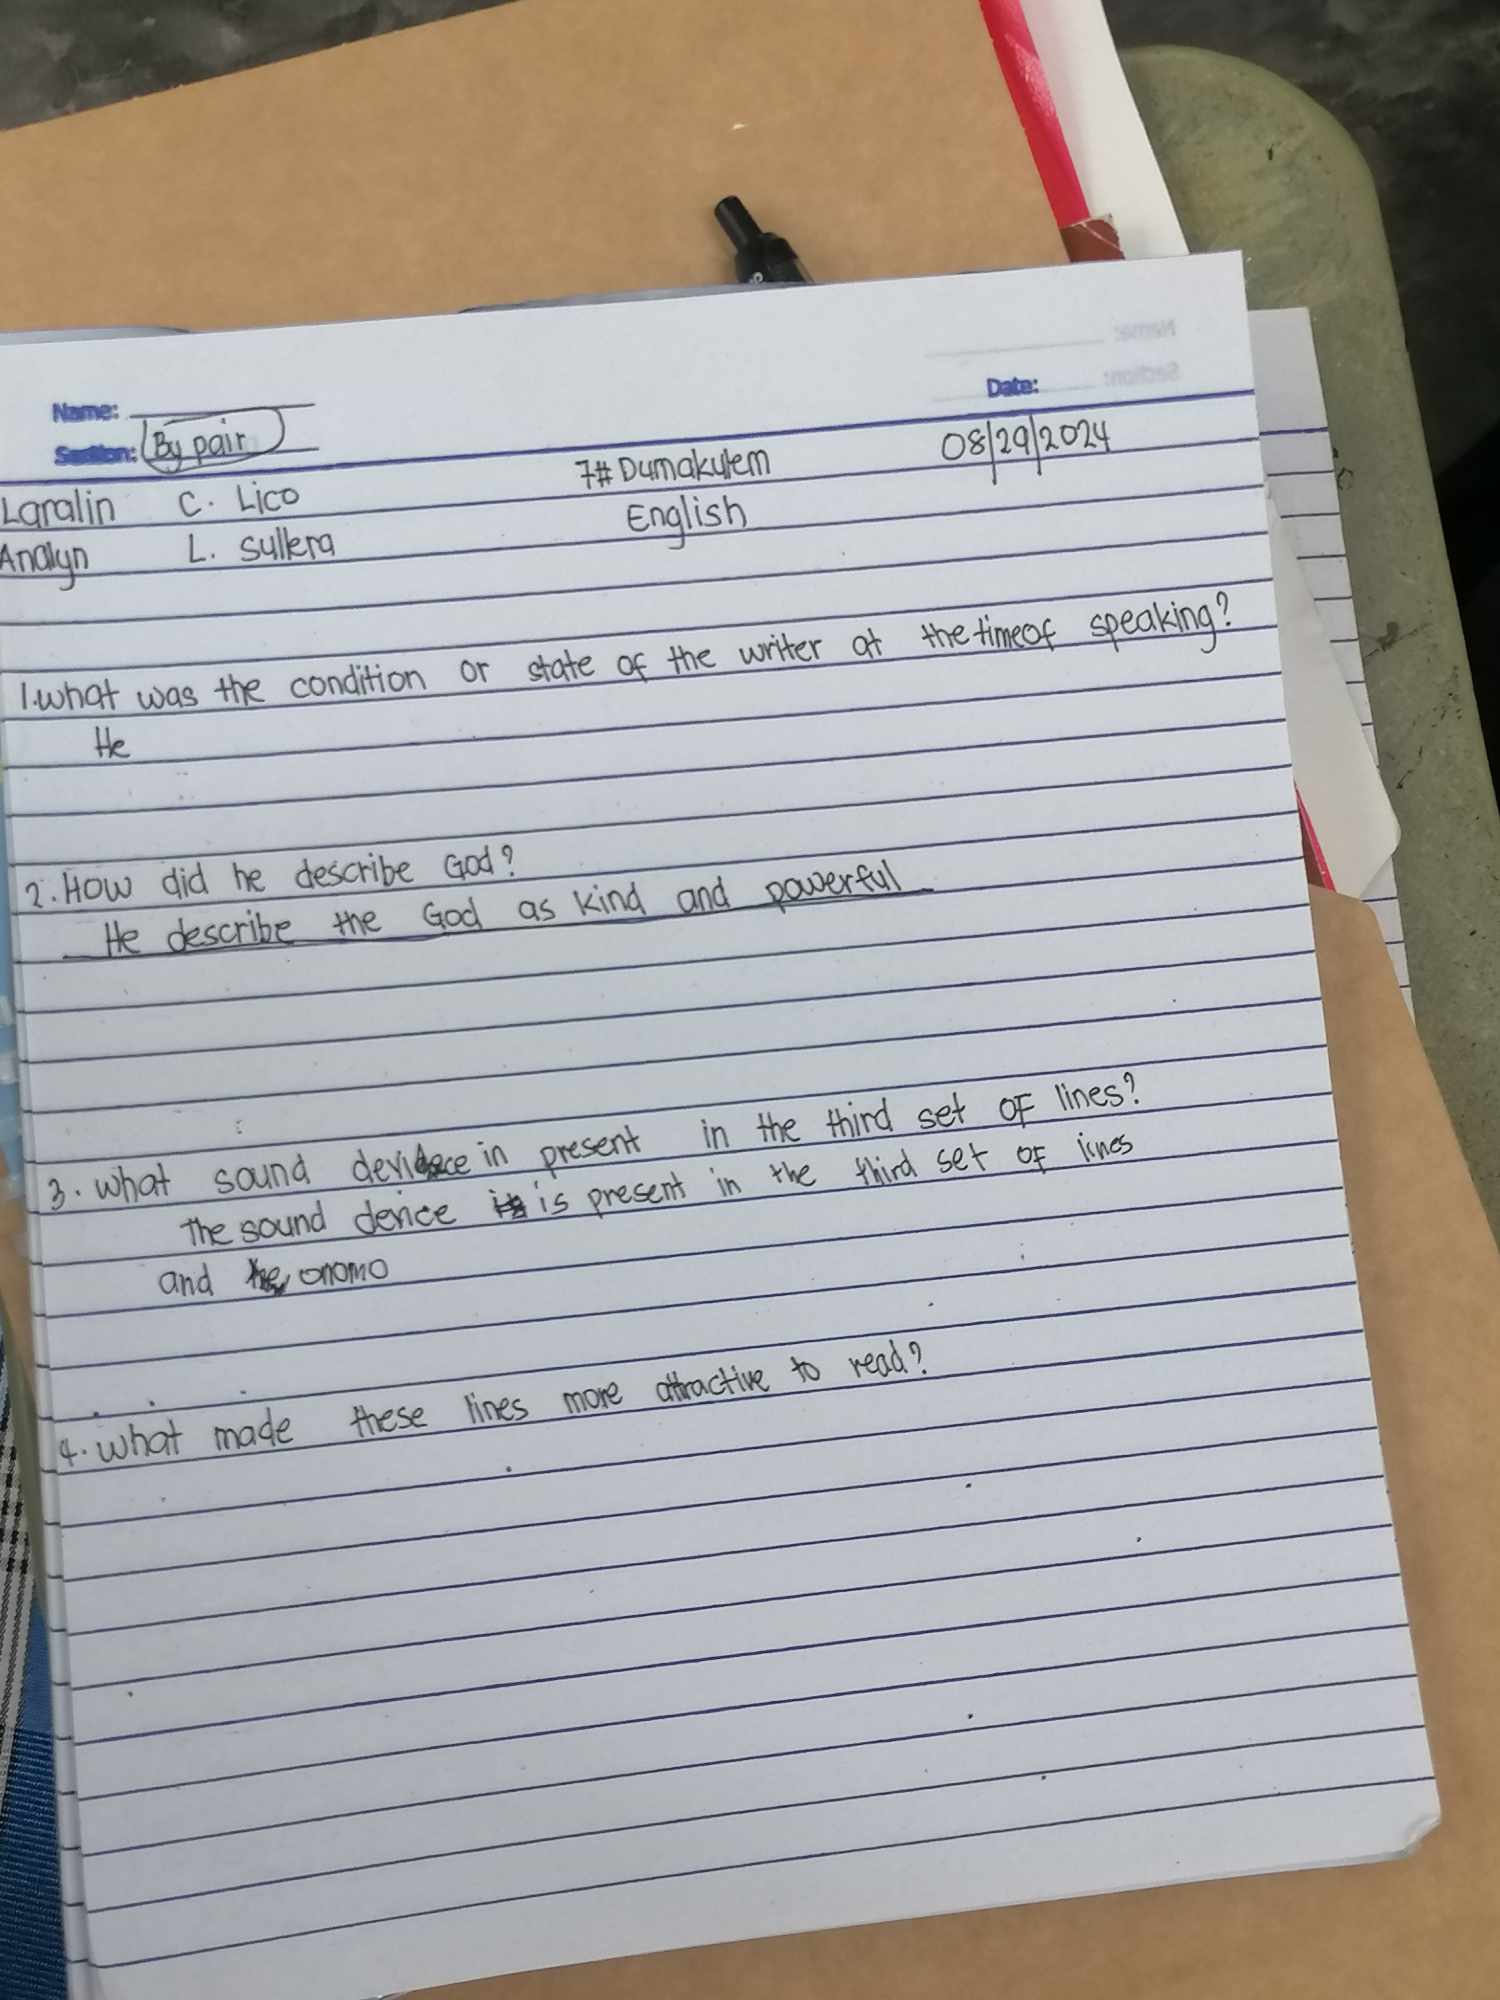 Name:
Section: By pair
Date:
08/29/2024
7# Dumakulem
Laralin C. Lico
English
Analyn L. Sullera
1. What was the condition or state of the writer at the time of speaking?
He
2. How did he describe God?
He describe the God as kind and powerful
3. What sound device in present in the third set of lines?
The sound device is present in the third set of lines
and onomo
4. What made these lines more attractive to read?